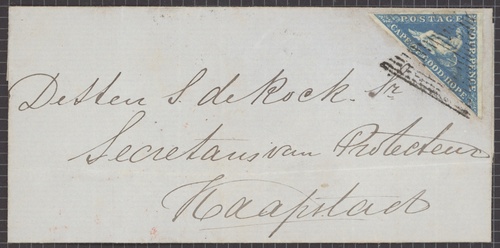 POSTAGE
CAPE OF GOOD HOPE
FOUR PENCE
S. de Kock. Sr
Secretaris van Protecteur
Kaapstad